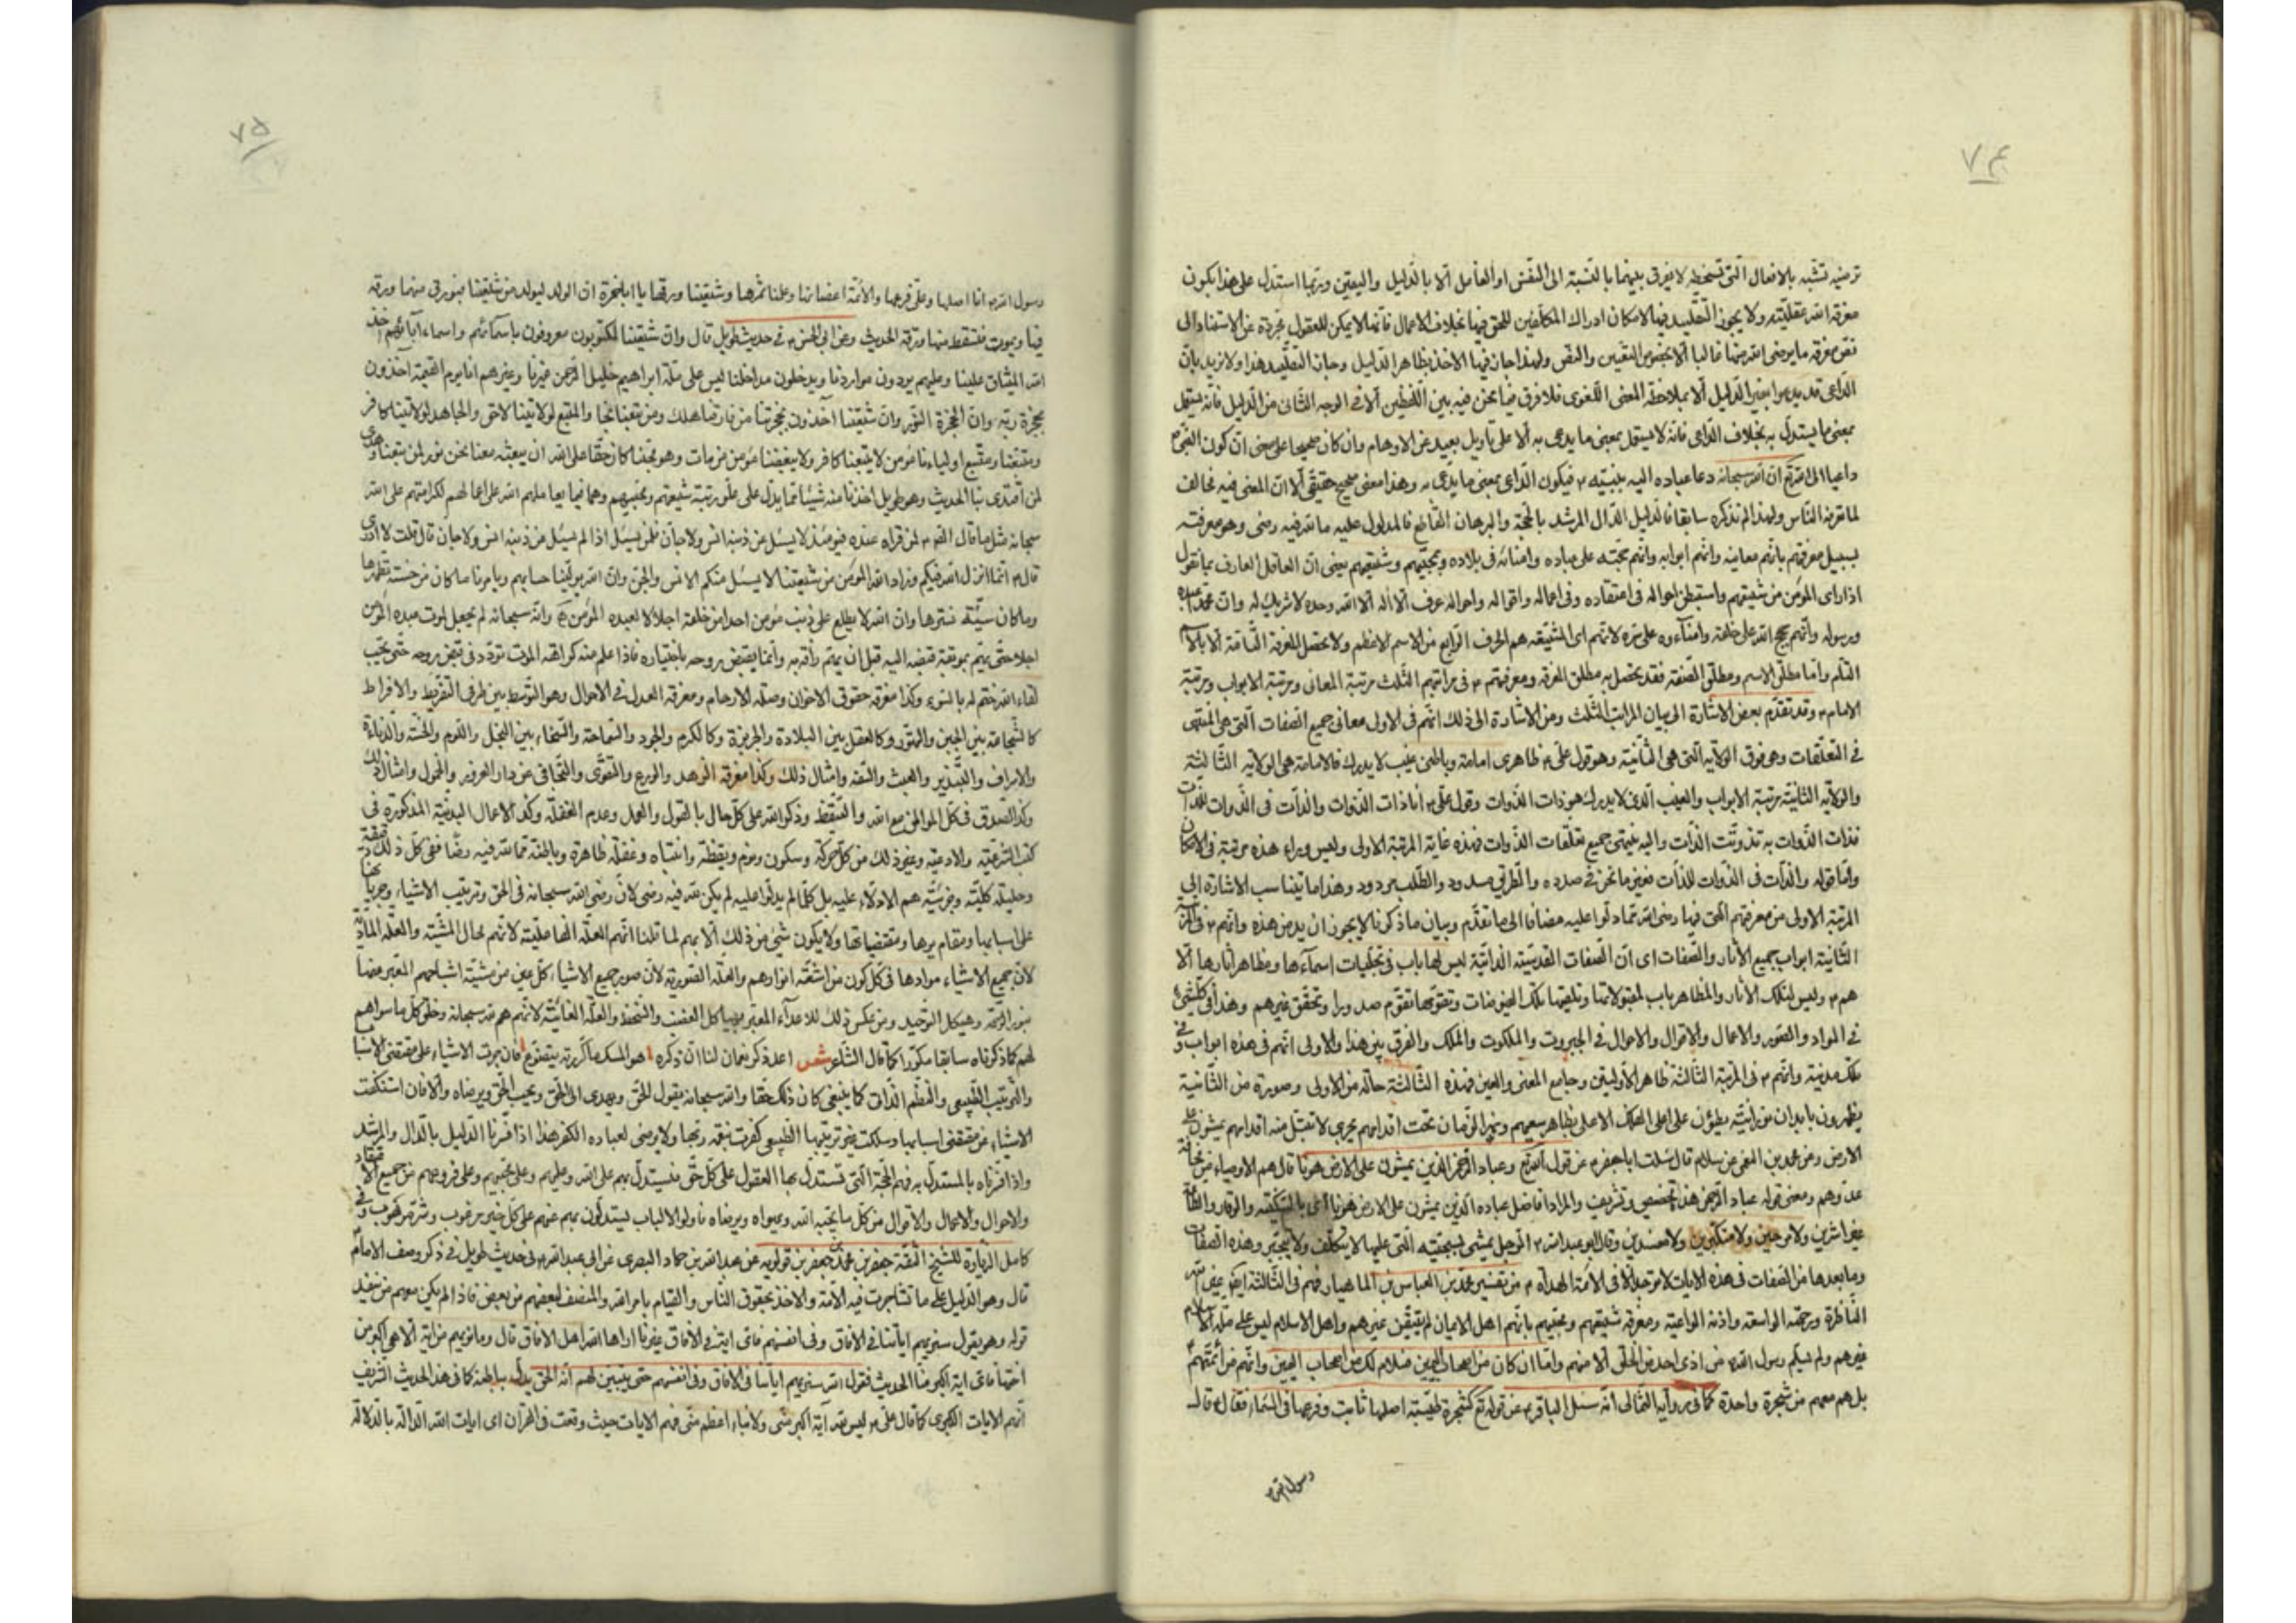 ٧۴
ترضيه تشبه بالافعال التى تسخطه لا يفرق بينهما بالنسبة الى النفس او العامل الا بالدليل واليقين وربما استدل على هذا بكون
معرفة الله عقلية ولا يجوز التقليد فيها لامكان ادراك المكلفين للحق فيها بخلاف الاعمال فانها لا يمكن للعقول مجردة عن الاستناد الى
نقل معرفة ما يرضى الله منها غالبا الا بخصوص التعيين والنص ولهذا جاز فيها الاخذ بظاهر الدليل وجاز التقليد هذا ولا نريد بان
الداعى قد يدعو بغير الدليل الا بملاحظة المعنى اللغوى فلا فرق فيما نحن فيه بين اللفظين الا فى الوجه الثانى من الدليل فانه يستعمل
بمعنى ما يستدل به بخلاف الداعى فانه لا يستعمل بمعنى ما يدعى به الا على تاويل بعيد عن الاوهام وان كان صحيحا على معنى ان كون النبى ص
داعيا الى الله ان الله سبحانه دعا عباده اليه بنبيه ص فيكون الداعى بمعنى ما يدعى به وهذا معنى صحيح حقيقى الا ان المعنى فيه مخالف
لما تعرفه الناس ولهذا لم نذكره سابقا فالدليل الدال المرشد بالحجة والبرهان القاطع فالمدلول عليه ما لله فيه رضى وهو معرفته
بسبيل معرفتهم بانهم معانيه وانهم ابوابه وانهم حجته على عباده وامنائه فى بلاده ومحبيهم وشيعتهم يعنى ان العاقل العارف بما نقول
اذا راى المؤمن من شيعتهم واستبطن احواله فى اعتقاده وفى اعماله واقواله واحواله عرف الا اله الا الله وحده لا شريك له وان محمدا عبده
ورسوله وانهم حجج الله على خلقه وامنآءه على سره لانهم اى الشيعة هم الحرف الرابع من الاسم الاعظم ولا يحصل المعرفة التامة الا بالاسم
التام واما مطلق الاسم ومطلق الصفة فقد يحصل به مطلق المعرفة ومعرفتهم ع فى مراتبهم الثلث مرتبة المعانى ومرتبة الابواب ومرتبة
الامام ع وقد تقدم بعض الاشارة الى بيان المراتب الثلث ومن الاشارة الى ذلك انهم فى الاولى معانى جميع الصفات التى هى المنتهى
فى التعلقات وهى فوق الولاية التى هى الثانية وهو قول على ع ظاهرى امامة وباطنى غيب لا يدرك فالامامة هى الولاية الثالثة
والولاية الثانية مرتبة الابواب والغيب الذى لا يدرك هو ذات الذوات وقول على ع انا ذات الذوات والذات فى الذوات للذات
فذات الذوات به تذوتت الذات واليه ينتهى جميع تعلقات الذوات فهذه غاية المرتبة الاولى وليس وراء هذه مرتبة فى الامكان
واما قوله والذات فى الذوات للذات فعن ما نحن فى صدده والطريق مسدود والطلب مردود وهذا ما يناسب الاشارة الى
المرتبة الاولى من معرفتهم التى فيها رضى الله مما دلوا عليه مضافا الى ما تقدم وبيان ما ذكرنا لا يجوز ان يدعى هذه وانهم ع فى المرتبة
الثانية ابواب جميع الآثار والصفات اى ان الصفات القدسية الذاتية ليس لها باب فى تجليات اسمآءها ومظاهر آثارها الا
هم ع وليس لتلك الآثار والمظاهر باب لمقبولاتها وتلقيها تلك الفيوضات وتقومها تقوم صدور او تحقق غيرهم وهذا فى كل شئ
فى المواد والصور والاعمال والاقوال والاحوال فى الجبروت والملكوت والملك والفرق بين هذا والاولى انهم فى هذه ابواب وفى
تلك مدينة وانهم ع فى المرتبة الثالثة ظاهر الاوليين وجامع المعنى والعين فهذه الثالثة حالة من الاولى وصورة من الثانية
يظهرون بابدان نورانية يطؤن على اعلى الفلك الاعلى بظاهر سعيهم ونهر الزمان تحت اقدامهم يجرى لا تبتل منه اقدامهم يمشون على
الارض وعن محمد بن النعمن بن سلام قال سئلت ابا جعفر ع عن قول الله تع وعباد الرحمن الذين يمشون على الارض هونا قال هم الاوصياء من مخافة
عدوهم ومعنى قوله عباد الرحمن هذا تخصيص وتشريف والمراد افاضل عباده الذين يمشون على الارض هونا اى بالسكينة والوقار والطاعة
غير اشرين ولا مرحين ولا متكبرين ولا مفسدين وقال ابو عبد الله ع الرجل يمشى بسجيته التى عليها لا يتكلف ولا يتجبر وهذه الصفات
وما بعدها من الصفات فى هذه الايات لا توجد الا فى الائمة الهداة ع من تفسير محمد بن العباس بن الماهيار فهم فى الثالثة ايضا عين الله
الناظرة ورحمته الواسعة واذنه الواعية ومعرفة شيعتهم ومحبيهم بانهم اهل الايمان لم يتيقن غيرهم واهل الاسلام ليس على ملة الاسلام
غيرهم ولم يسلم رسول الله ص من اذى احد من الخلق الا منهم واما ان كان من اصحاب اليمين فسلام لك من اصحاب اليمين وانهم من ائمتهم
بل هم معهم من شجرة واحدة كما فى رواية الثمالى انه سئل الباقر ع عن قوله تع كشجرة طيبة اصلها ثابت وفرعها فى السماء فقال ع قال
رسول الله ص
٧۵
رسول الله ص انا اصلها وعلى فرعها والائمة اغصانها وعلمنا ثمرها وشيعتنا ورقها يا ابا حمزة ان الولد ليولد من شيعتنا فتورق منها ورقة
فيها ويموت فتسقط منها ورقة الحديث وعن ابى الحسن ع فى حديث طويل قال وان شيعتنا لمكتوبون معروفون باسمآئهم واسماء آبائهم اخذ
الله الميثاق علينا وعليهم يردون مواردنا ويدخلون مداخلنا ليس على ملة ابراهيم خليل الرحمن غيرنا وغيرهم انا يوم القيمة آخذون
بحجزة ربه وان الحجزة النور وان شيعتنا آخذون بحجزتنا من فارقنا هلك ومن تبعنا نجا والمتبع لولايتنا لاحق والجاحد لولايتنا كافر
ومتبعنا ومتبع اولياءنا مؤمن لا يتبعنا كافر ولا يبغضنا مؤمن من مات وهو محبنا كان حقا على الله ان يبعثه معنا نحن نور لمن تبعنا وهدى
لمن اقتدى بنا الحديث وهو طويل اخذنا منه شيئا مما يدل على علو رتبة شيعتهم ومحبيهم وهما فيما يعاملهم الله على اعمالهم لكرامتهم على الله
سبحانه مثل ما قال الله ع لمن قراه عنده فيومئذ لا يسئل عن ذنبه انس ولا جان فلمن يسئل اذا لم يسئل من ذنبه انس ولا جان قال قلت لا ادرى
قال ع انما انزل الله فيكم وزاد الله المؤمن من شيعتنا لا يسئل منكم الانس والجن وان الله يولينا حسابهم ويامرنا ما كان من حسنة نظهرها
وما كان سيئة نسترها وان الله لا يطلع على ذنب مؤمن احدا من خلقه اجلالا لعبده المؤمن وانه سبحانه لم يجعل لموت عبده المؤمن
اجلا حتى يهتم بموبقة قبضه اليه قبل ان يهتم رأفة به وانما يقبض روحه باختياره فاذا علم منه كراهة الموت تردد فى قبض روحه حتى يحب
لقاء الله ختم له بالسوء وكذا معرفة حقوق الاخوان وصلة الارحام ومعرفة العدل فى الاحوال وهو التوسط بين طرفى التفريط والافراط
كالشجاعة بين الجبن والتهور وكالعقل بين البلادة والجربزة وكالكرم والجود والسماحة والسخاء بين البخل واللوم والخسة والدناءة
والاسراف والتبذير والعبث والسفه وامثال ذلك وكذا معرفة الزهد والورع والتقوى والتجافى عن دار الغرور والخمول وامثال ذلك
وكذا الصدق فى كل المواطن مع الله والتيقظ وذكر الله على كل حال بالقول والعمل وعدم الغفلة وكذا الاعمال البدنية المذكورة فى
كتب الشرعية والادعية وغير ذلك من كل حركة وسكون ونوم ويقظة وانتباه وغفلة ظاهرة وباطنة مما لله فيه رضا ففى كل ذلك دقيقه
وجليله كليته وجزئيته هم الادلاء عليه بل كلما لم يدلوا عليه لم يكن لله فيه رضى لان رضى الله سبحانه فى الحق وترتيب الاشياء وجريانها
على اسبابها ومقاديرها ومقتضياتها ولا يكون شئ من ذلك الا بهم لما قلنا انهم العلة الفاعلية لانهم محال المشية والعلة المادية
لان جميع الاشياء موادها فى كل كون من اشعة انوارهم والعلة الصورية لان صور جميع الاشياء كل عين من مشية اشباحهم المعبر عنها
بنور الرحمة وهيكل التوحيد ومن عكس ذلك للاعدآء المعبر بهياكل الغضب والسخط والعلة الغائية لانهم هم لله سبحانه وخلق كل ما سواهم
لهم كما ذكرناه سابقا مكررا كما قال الشاعر شعر اعد ذكر نعمان لنا ان ذكره هو المسك ما كررته يتضوع فان جرت الاشياء على مقتضى الاسباب
والترتيب الطبيعى والنظم الذاتى كما ينبغى كان ذلك حقا والله سبحانه يقول الحق ويهدى الى الحق ويحب الحق ويرضاه والا فان استنكفت
الاشياء عن مقتضى اسبابها وسلكت غير ترتيبها الطبيعى كفرت نعمة ربها ولا يرضى لعباده الكفر هذا اذا فسرنا الدليل بالدال والمرشد
واذا فسرناه بالمستدل به فهم الحجة التى تستدل بها العقول على كل حق فيستدل بهم على الله وعليهم وعلى محبيهم وعلى فروعهم من جميع الاعتقادات
والاحوال والاعمال والاقوال من كل ما يحبه الله ويهواه ويرضاه فاولوا الالباب يستدلون بهم عنهم على كل خير مرغوب وشر مرهوب وفى
كامل الزيارة للشيخ الثقة جعفر بن محمد بن جعفر بن قولويه عن عبد الله بن حماد البصرى عن ابى عبد الله ع فى حديث طويل فى ذكر وصف الامام
قال وهو الدليل على ما تشاجرت فيه الامة والاخذ بحقوق الناس والقيام بامر الله والمنصف لبعضهم من بعض فاذا لم يكن معهم من ينفذ
قوله وهو يقول سنريهم آياتنا فى الآفاق وفى انفسهم فاى آية فى الآفاق غيرنا اراها الله اهل الآفاق قال وما نريهم من اية الا هى اكبر من
اختها فاى اية اكبر منا الحديث فقول الله سنريهم اياتنا فى الآفاق وفى انفسهم حتى يتبين لهم انه الحق يدل بباطنه كما فى هذا الحديث الشريف
انهم الايات الكبرى كما قال على ع ليس لله آية اكبر منى ولا نباء اعظم منى فهم الايات حيث وقعت فى القرآن اى ايات الله الدالة بالدلالة